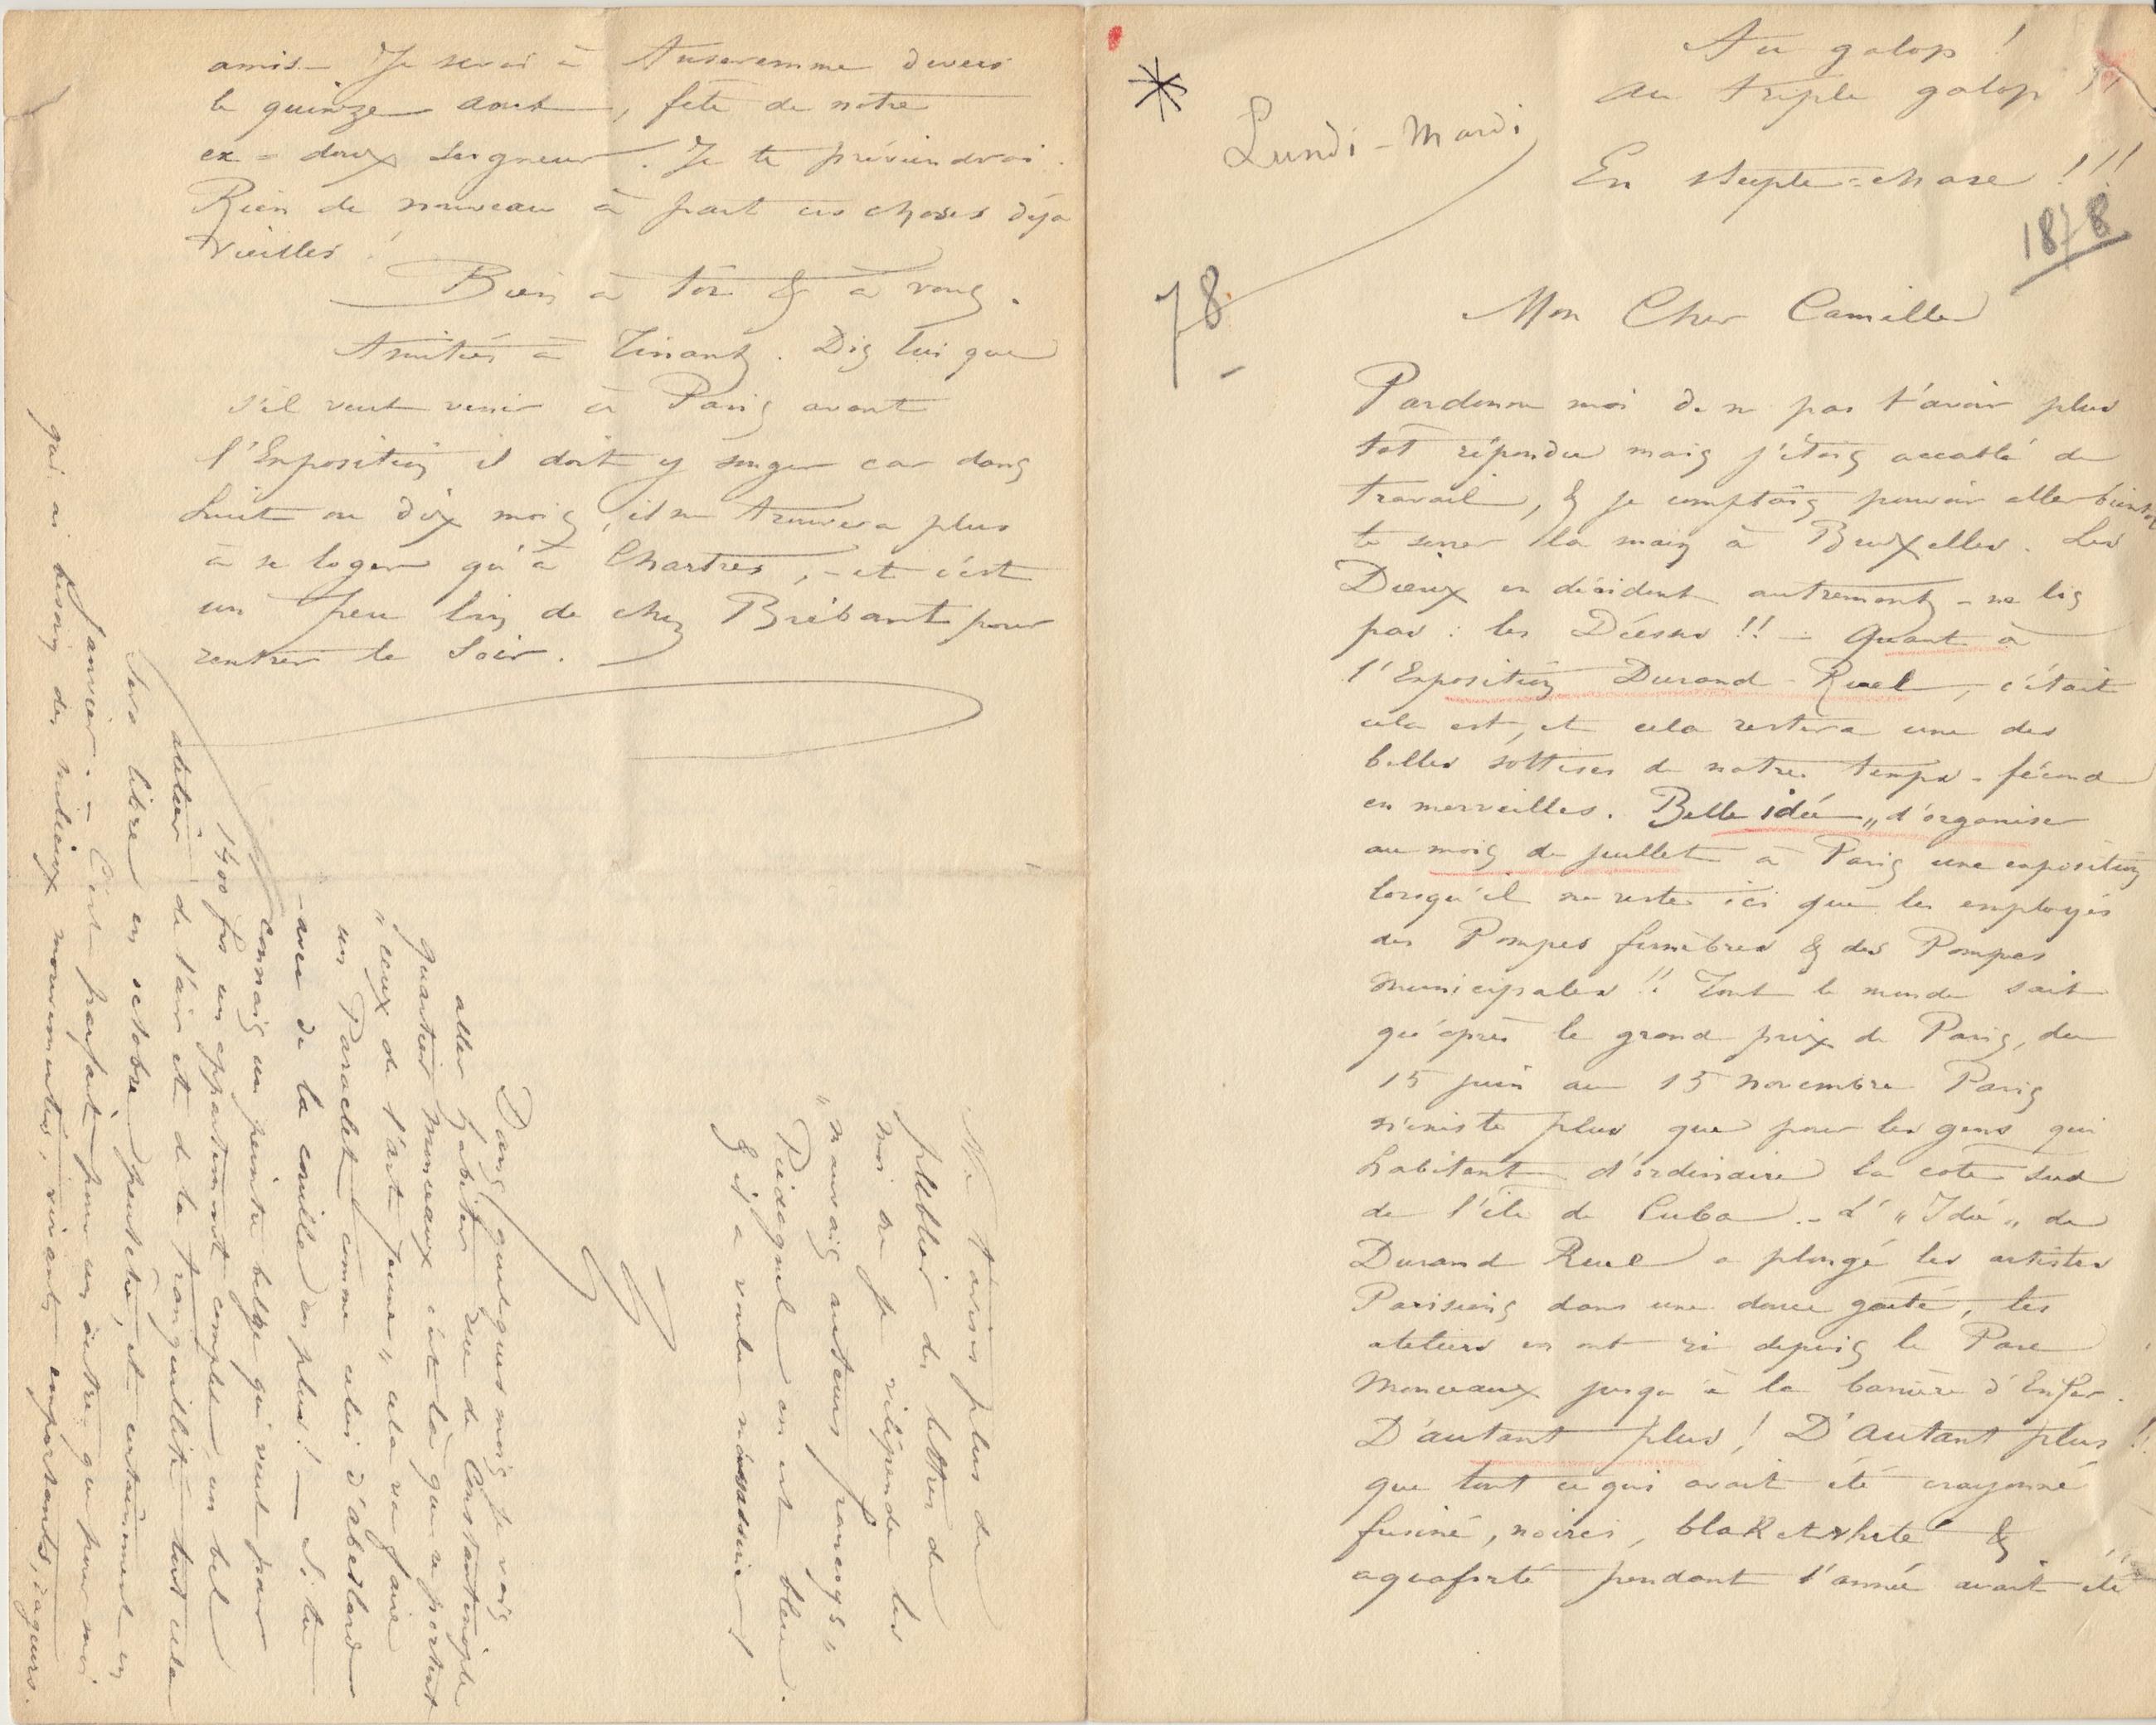 Au galop !
au triple galop !!
Lundi - Mardi
En steeple=chase !!!
1878
78
Mon Cher Camille
Pardonne moi de ne pas t'avoir plus
tôt répondu mais j'étais accablé de
travail, & je comptais pouvoir aller bientôt
te serrer la main à Bruxelles. Les
Dieux en décident autrement – ne lis
pas : les Déesses !! – Quant à
l'Exposition Durand-Ruel, c'était
cela est, et cela restera une des
belles sottises de notre temps – fécond
en merveilles. Belle idée „ d'organiser
au mois de juillet à Paris une exposition
lorsqu'il ne reste ici que les employés
des Pompes funèbres & des Pompes
municipales !! Tout le monde sait
qu'après le grand prix de Paris, du
15 juin au 15 novembre Paris
n'existe plus que pour les gens qui
habitent d'ordinaire la cote sud
de l'île de Cuba. – L' „ Idée „ de
Durand Ruel a plongé les artistes
Parisiens dans une douce gaité, les
ateliers en ont ri depuis le Parc
Monceaux jusqu'à la barrière d'Enfer.
D'autant plus ! D'Autant plus !!
que tout ce qui avait été crayonné
fusiné, noirci, blaketwhité &
aquaforté pendant l'année avait été
amis – Je serai à Anseremme devers
le quinze aout, fête de notre
ex = doux Seigneur. Je te préviendrai.
Rien de nouveau à part ces choses déjà
vieilles !
Bien à toi & à vous.
Amitiés à Tinant. Dis lui que
s'il veut venir à Paris avant
l'Exposition il doit y songer car dans
huit ou dix mois, il ne trouvera plus
à se loger qu'à Chartres, – et c'est
un peu loin de chez Brébant pour
rentrer le Soir.
Ne t'avises plus de
publier des lettres de
moi où je vilipende les
„ mauvais auteurs français „
Piédagnel en est bleu.
& il a voulu m'assassiner !
Dans quelques mois je vais
aller habiter rue de Constantinople
quartier Monceaux c'est là que se portent
„ ceux de l'art jeune „ cela va faire
un Paraclet comme celui d'Abeilard
– avec de la couille en plus ! – Si tu
connais un peintre belge qui veut pour
1400 frs un appartement complet, un bel
atelier de l'air et de la tranquillité tout cela
sera libre en octobre peut être, et certainement en
Janvier. – C'est parfait pour un autre que pour moi
qui ai besoin des milieux mouvementés, vivants, emportants, rageurs.